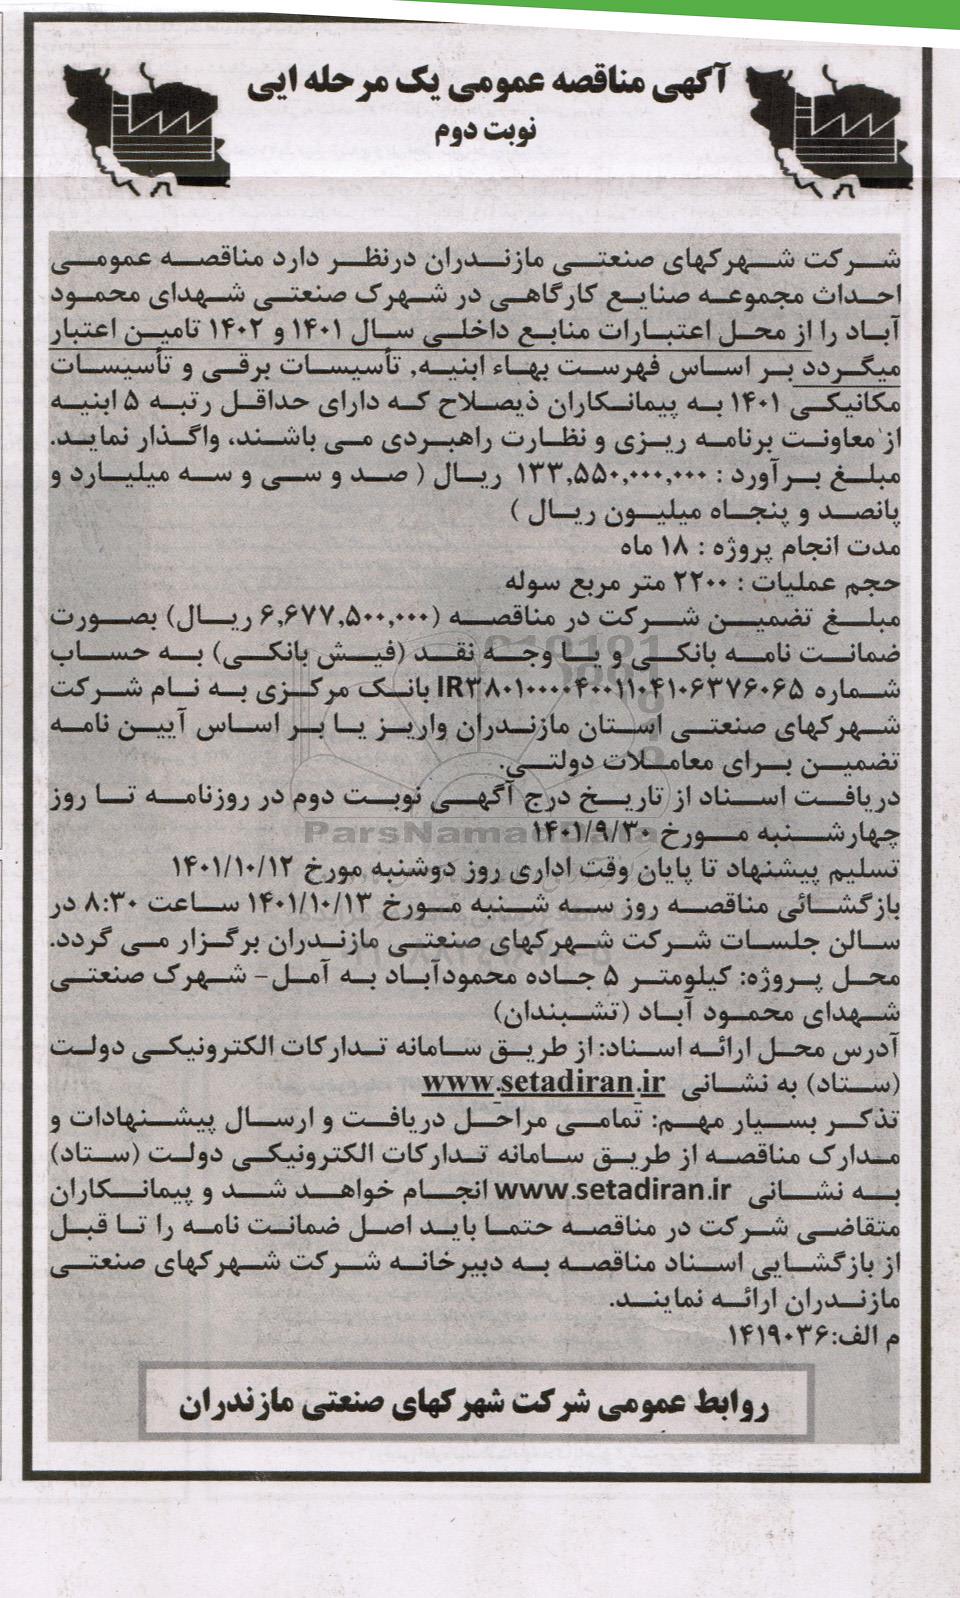 آگهی مناقصه عمومی یک مرحله ایی
نوبت دوم
شرکت شهرکهای صنعتی مازندران درنظر دارد مناقصه عمومی
احداث مجموعه صنایع کارگاهی در شهرک صنعتی شهدای محمود
آباد را از محل اعتبارات منابع داخلی سال ۱۴۰۱ و ۱۴۰۲ تامین اعتبار
میگردد بر اساس فهرست بهاء ابنیه, تأسیسات برقی و تأسیسات
مکانیکی ۱۴۰۱ به پیمانکاران ذیصلاح که دارای حداقل رتبه ۵ ابنیه
از معاونت برنامه ریزی و نظارت راهبردی می باشند، واگذار نماید.
مبلغ برآورد : ۱۳۳,۵۵۰,۰۰۰,۰۰۰ ریال ( صد و سی و سه میلیارد و
پانصد و پنجاه میلیون ریال )
مدت انجام پروژه : ۱۸ ماه
حجم عملیات : ۲۲۰۰ متر مربع سوله
مبلغ تضمین شرکت در مناقصه (۶,۶۷۷,۵۰۰,۰۰۰ ریال) بصورت
ضمانت نامه بانکی و یا وجه نقد (فیش بانکی) به حساب
شماره IR۳۸۰۱۰۰۰۰۴۰۰۱۱۰۴۱۰۶۳۷۶۰۶۵ بانک مرکزی به نام شرکت
شهرکهای صنعتی استان مازندران واریز یا بر اساس آیین نامه
تضمین برای معاملات دولتی.
دریافت اسناد از تاریخ درج آگهی نوبت دوم در روزنامه تا روز
چهارشنبه مورخ ۱۴۰۱/۹/۳۰
ParsNamadData
تسلیم پیشنهاد تا پایان وقت اداری روز دوشنبه مورخ ۱۴۰۱/۱۰/۱۲
بازگشائی مناقصه روز سه شنبه مورخ ۱۴۰۱/۱۰/۱۳ ساعت ۸:۳۰ در
سالن جلسات شرکت شهرکهای صنعتی مازندران برگزار می گردد.
محل پروژه: کیلومتر ۵ جاده محمودآباد به آمل- شهرک صنعتی
شهدای محمود آباد (تشبندان)
آدرس محل ارائه اسناد: از طریق سامانه تدارکات الکترونیکی دولت
(ستاد) به نشانی www.setadiran.ir
تذکر بسیار مهم: تمامی مراحل دریافت و ارسال پیشنهادات و
مدارک مناقصه از طریق سامانه تدارکات الکترونیکی دولت (ستاد)
به نشانی www.setadiran.ir انجام خواهد شد و پیمانکاران
متقاضی شرکت در مناقصه حتما باید اصل ضمانت نامه را تا قبل
از بازگشایی اسناد مناقصه به دبیرخانه شرکت شهرکهای صنعتی
مازندران ارائه نمایند.
م الف:۱۴۱۹۰۳۶
روابط عمومی شرکت شهرکهای صنعتی مازندران